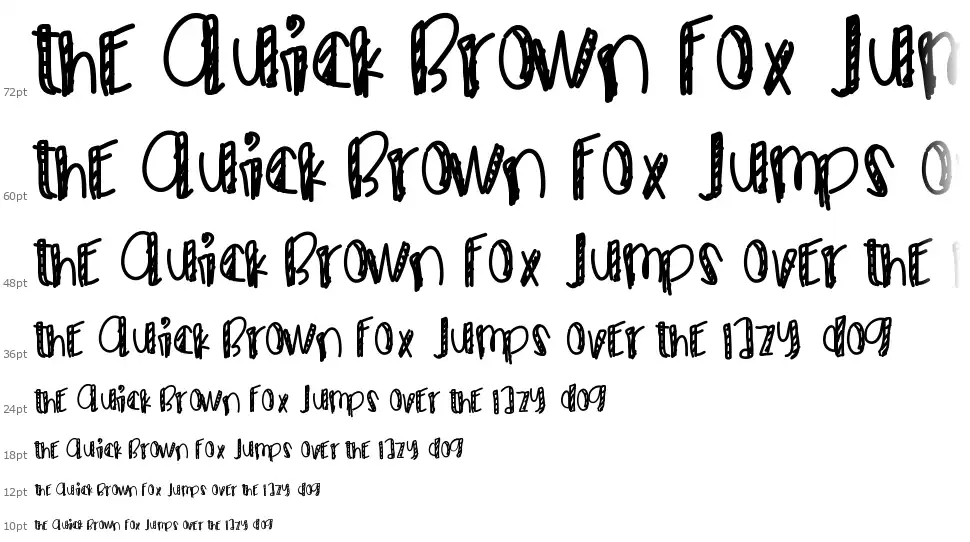 72pt the Quick Brown Fox Jum
60pt the Quick Brown Fox Jumps o
48pt the Quick Brown Fox Jumps over the
36pt the Quick Brown Fox Jumps over the lazy dog
24pt the Quick Brown Fox Jumps over the lazy dog
18pt the Quick Brown Fox Jumps over the lazy dog
12pt the Quick Brown Fox Jumps over the lazy dog
10pt the Quick Brown Fox Jumps over the lazy dog